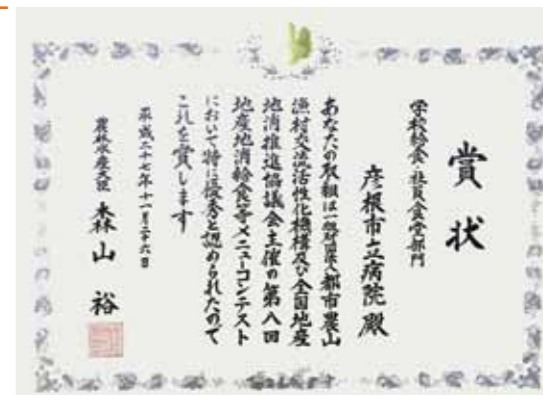 賞状
学校給食・社員食堂部門
彦根市立病院殿
あなたの取組は一般財団法人都市農山
漁村交流活性化機構及び全国地産
地消推進協議会主催の第八回
地産地消給食等メニューコンテスト
において特に優秀と認められたので
これを賞します
平成二十七年十一月二十六日
農林水産大臣 森山 裕